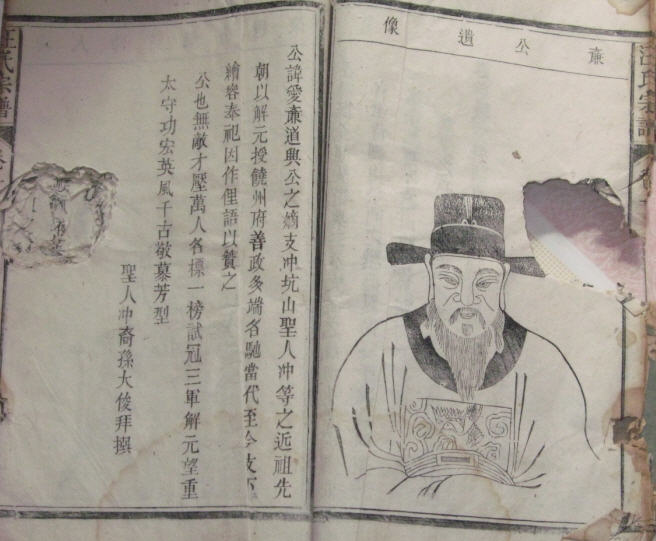 廉公遺像
公諱愛廉道興公之嫡支冲坑山聖人冲等之近祖先
朝以解元授饒州府善政多端名馳當代至今支
繪容奉祀因作俚語以贊之
公也無敵才壓萬人名標一榜試冠三軍解元望重
太守功宏英風千古敬慕芳型
聖人冲裔孫大俊拜撰
汪氏宗譜
汪氏宗譜